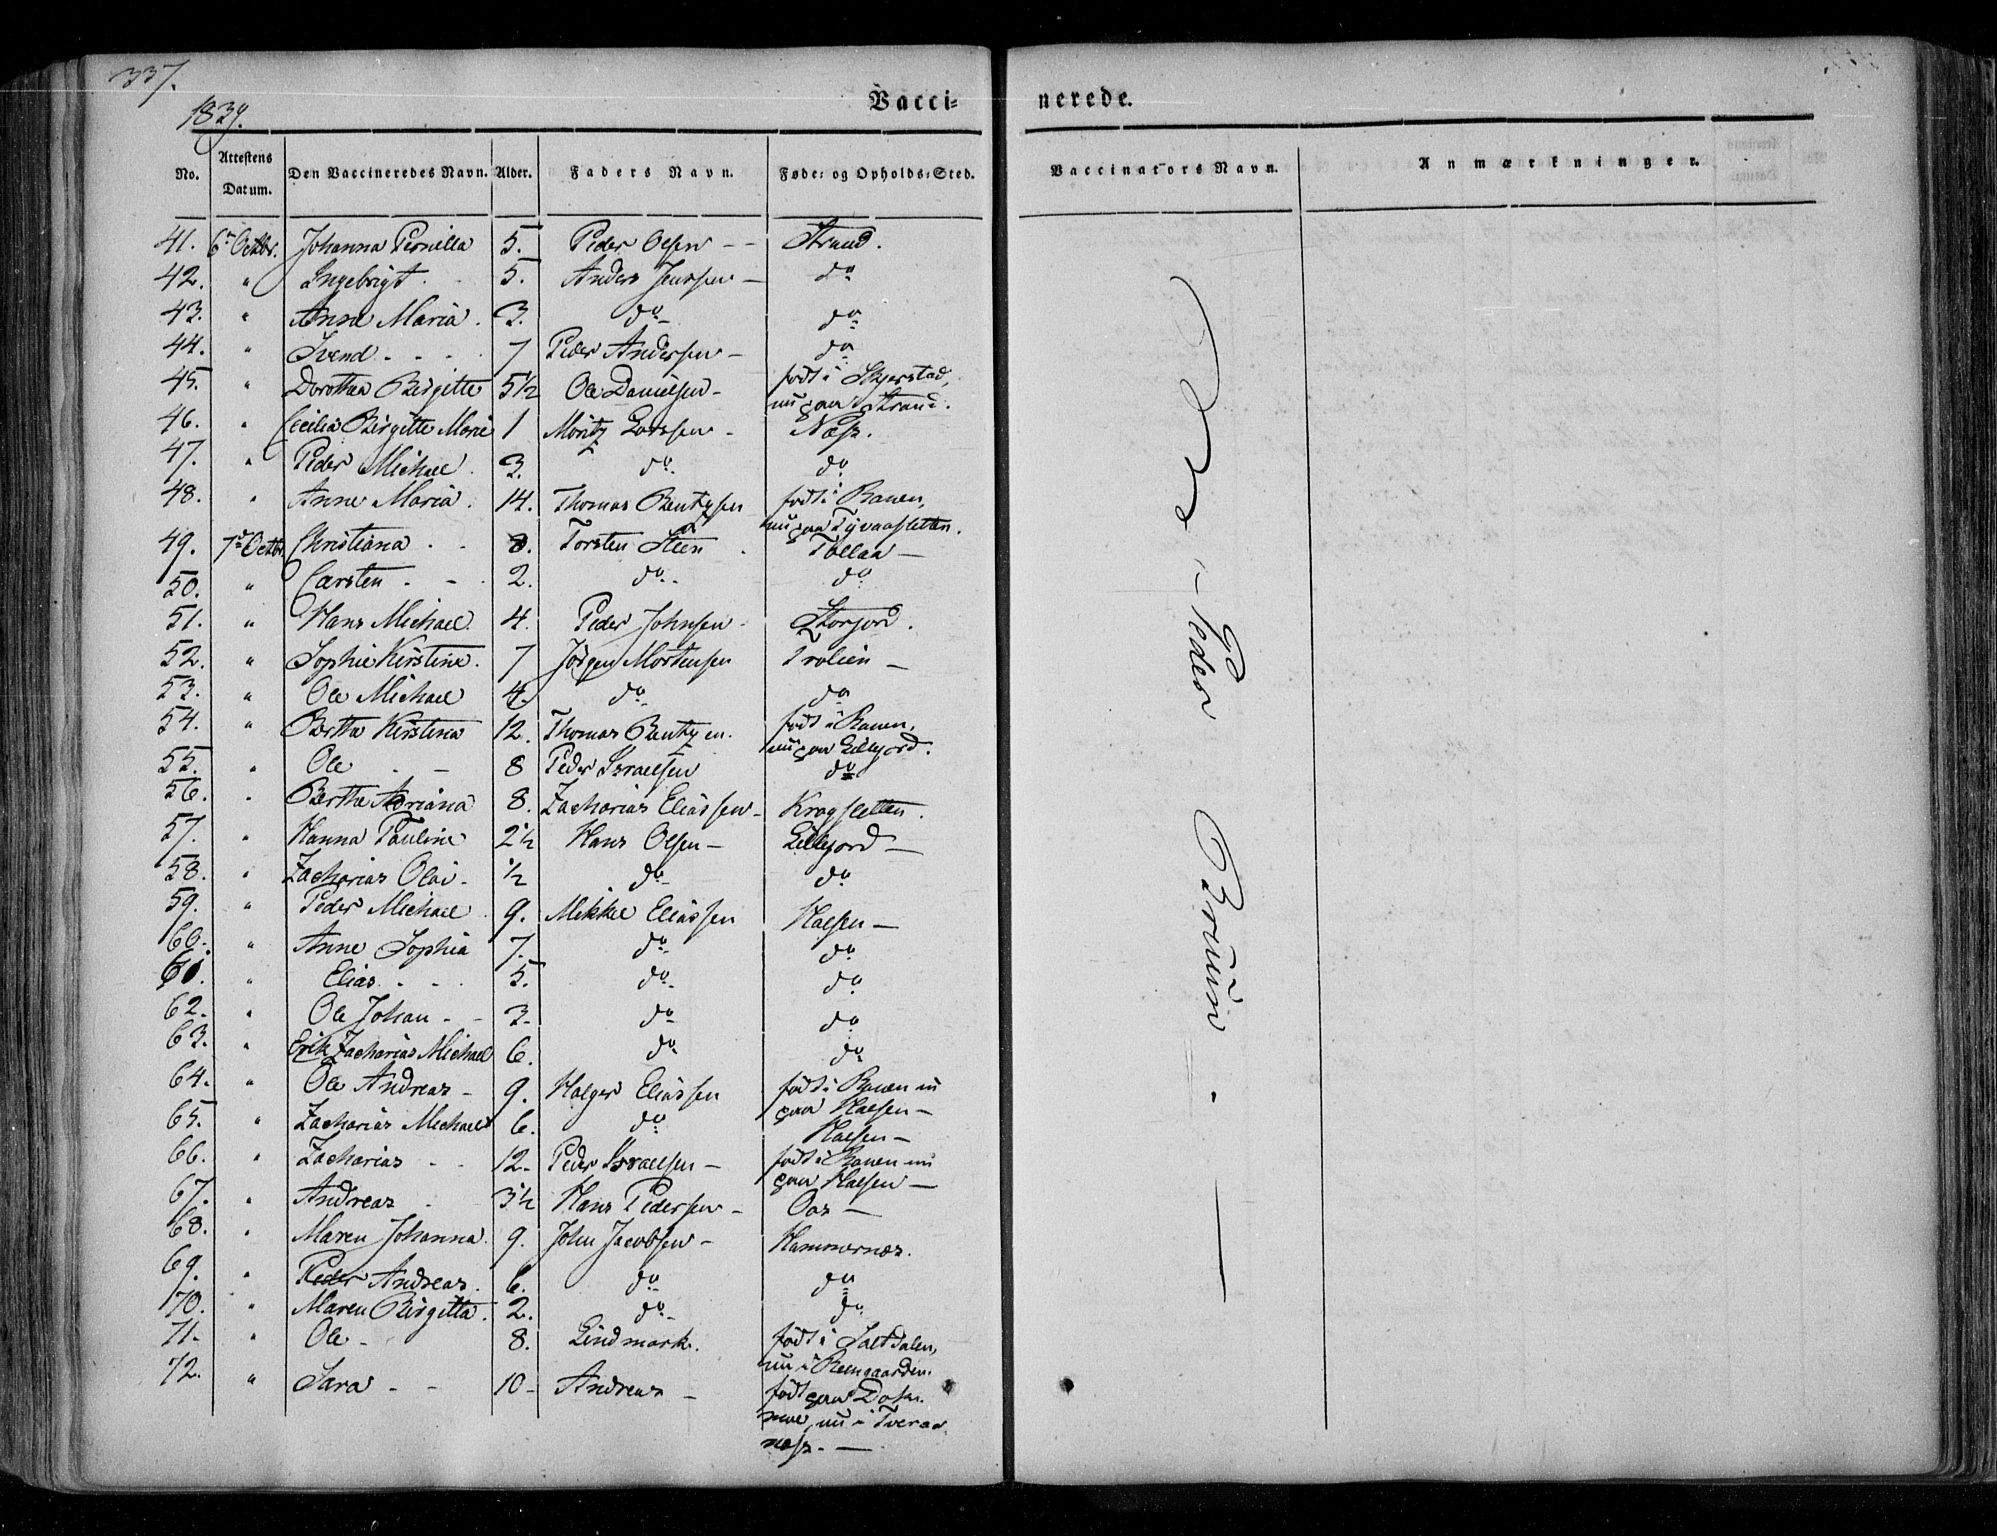 337.
1839.
Vacci- nerede.
No. Attestens Datum. Den Vaccineredes Navn. Alder. Faders Navn. Føde- og Opholds-Sted. Vaccinators Navn. Anmærkninger.
41. 6te Octbr. Johanna Pernilla 5. Peder Olsen - - Strand.
42. " Ingebrigt 5. Anders Jenssen - do
43. " Anne Maria. 3. do do
44. " Svend - - 7 Peder Andersen - do
45. " Dorothea Birgitte 5 1/2 Ole Danielsen - født i Skjerstad,
nu paa Strand.
46. " Cecilia Birgitte Marie 1 Moritz Larssen - Næss.
47. " Peder Michael. 3. do do
48. " Anne Maria. 14. Thomas Bentzsen født i Ranen,
nu paa Tjvaasletten.
49. 7de Octbr. Christiana - - 8. Torsten Steen Tollaa -
50. " Carsten - - 2. do do
51. " Hans Michael. 4. Peder Johnsen - Storjord.
52. " Sophie Kirstine. 7 Jörgen Mortensen Trolien -
53. " Ole Michael 4. do do
54. " Berthe Kirstina 12. Thomas Bentzen. født i Ranen,
nu paa Lillejord.
55. " Ole - - 8 Peder Israelsen do
56. " Berthe Adriana 8. Zacharias Eliassen - Kragsletten.
57. " Hanna Pauline 2 1/2 Hans Olsen - Lillejord -
58. " Zacharias Olai - 1/2 do do
59. " Peder Michael 9. Mikkel Eliassen Halsen -
60. " Anne Sophia 7. do do
61. " Elias - - 5. do do
62. " Ole Johan - - 3. do do
63. " Erik Zacharias Michael 6. do do
64. " Ole Andreas - 9. Holger Eliassen født i Ranen nu
paa Halsen -
65. " Zacharias Michael 6. do Halsen -
66. " Zacharias - - 12. Peder Israelsen - født i Ranen nu
paa Halsen -
67. " Andreas - 3 1/2 Hans Pedersen - Oas -
68. " Maren Johanna. 9. John Jacobsen - Hammernæs.
69. " Peder Andreas. 6. do do
70. " Maren Birgitta. 2. do do
71. " Ole - 8. Lindmark. født i Saltdalen,
nu i Reengaarden.
72. " Sara - - 10 - Andreas - født paa
nu i Tveraa
næss. -
Peder Bruun. -